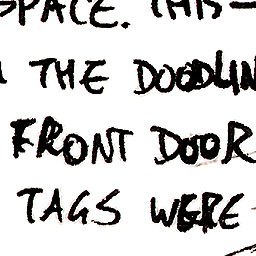 SPACE. THIS
THE DOODLIN
FRONT DOOR
TAGS WERE